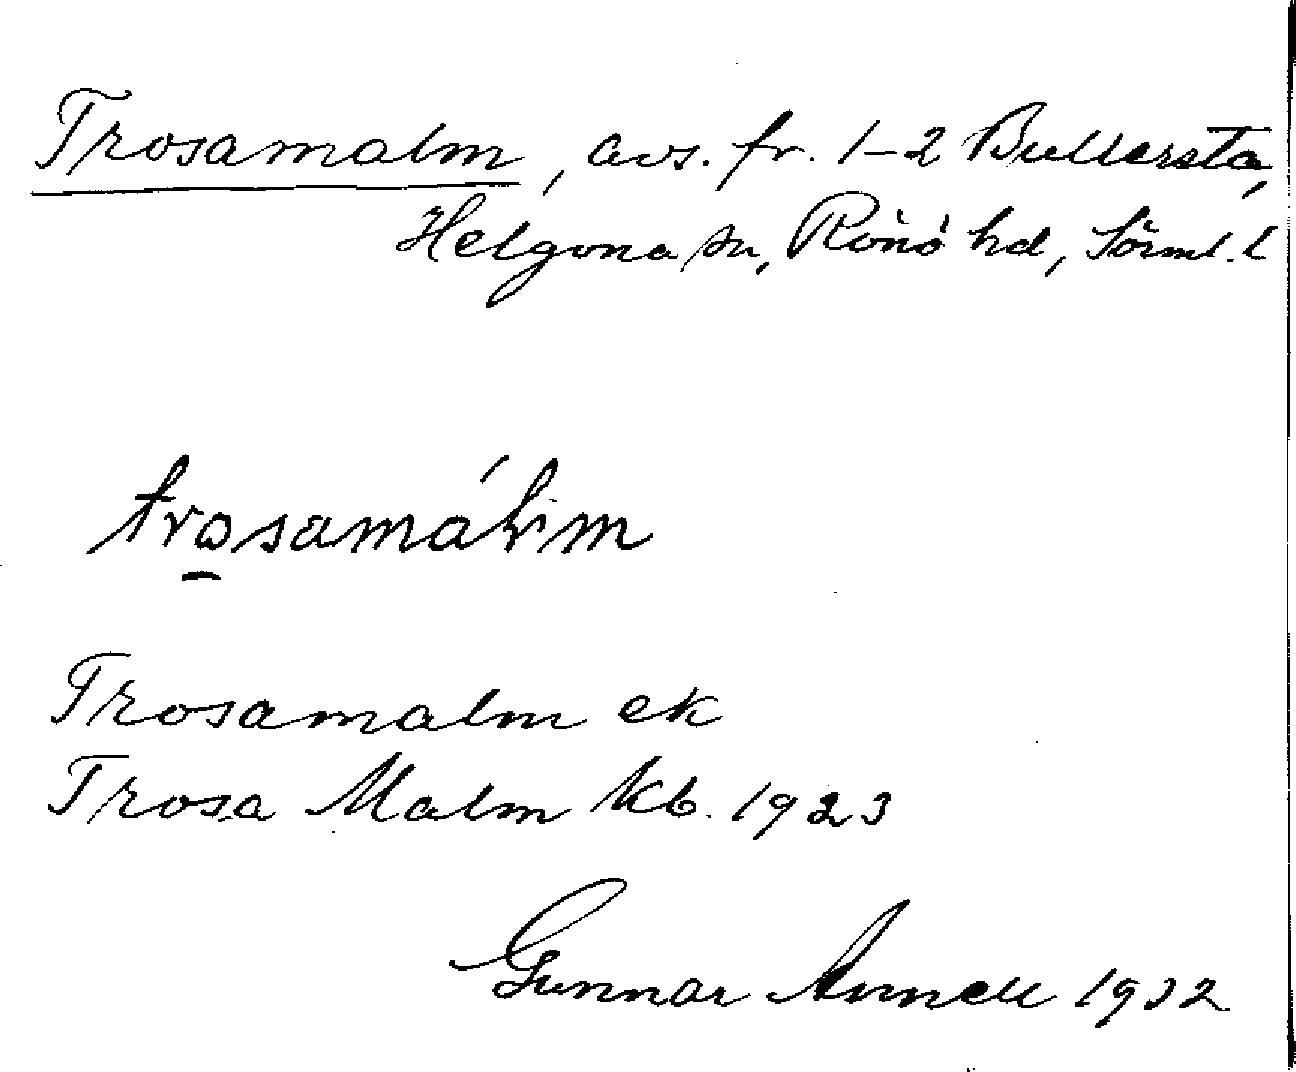 Trosamalm, avs. fr. 1-2 Bullersta,
Helgona sn, Rönö hd, Sörml. l
Trosamalm ek
Trosa Malm kb. 1923
Gunnar Annell 1932